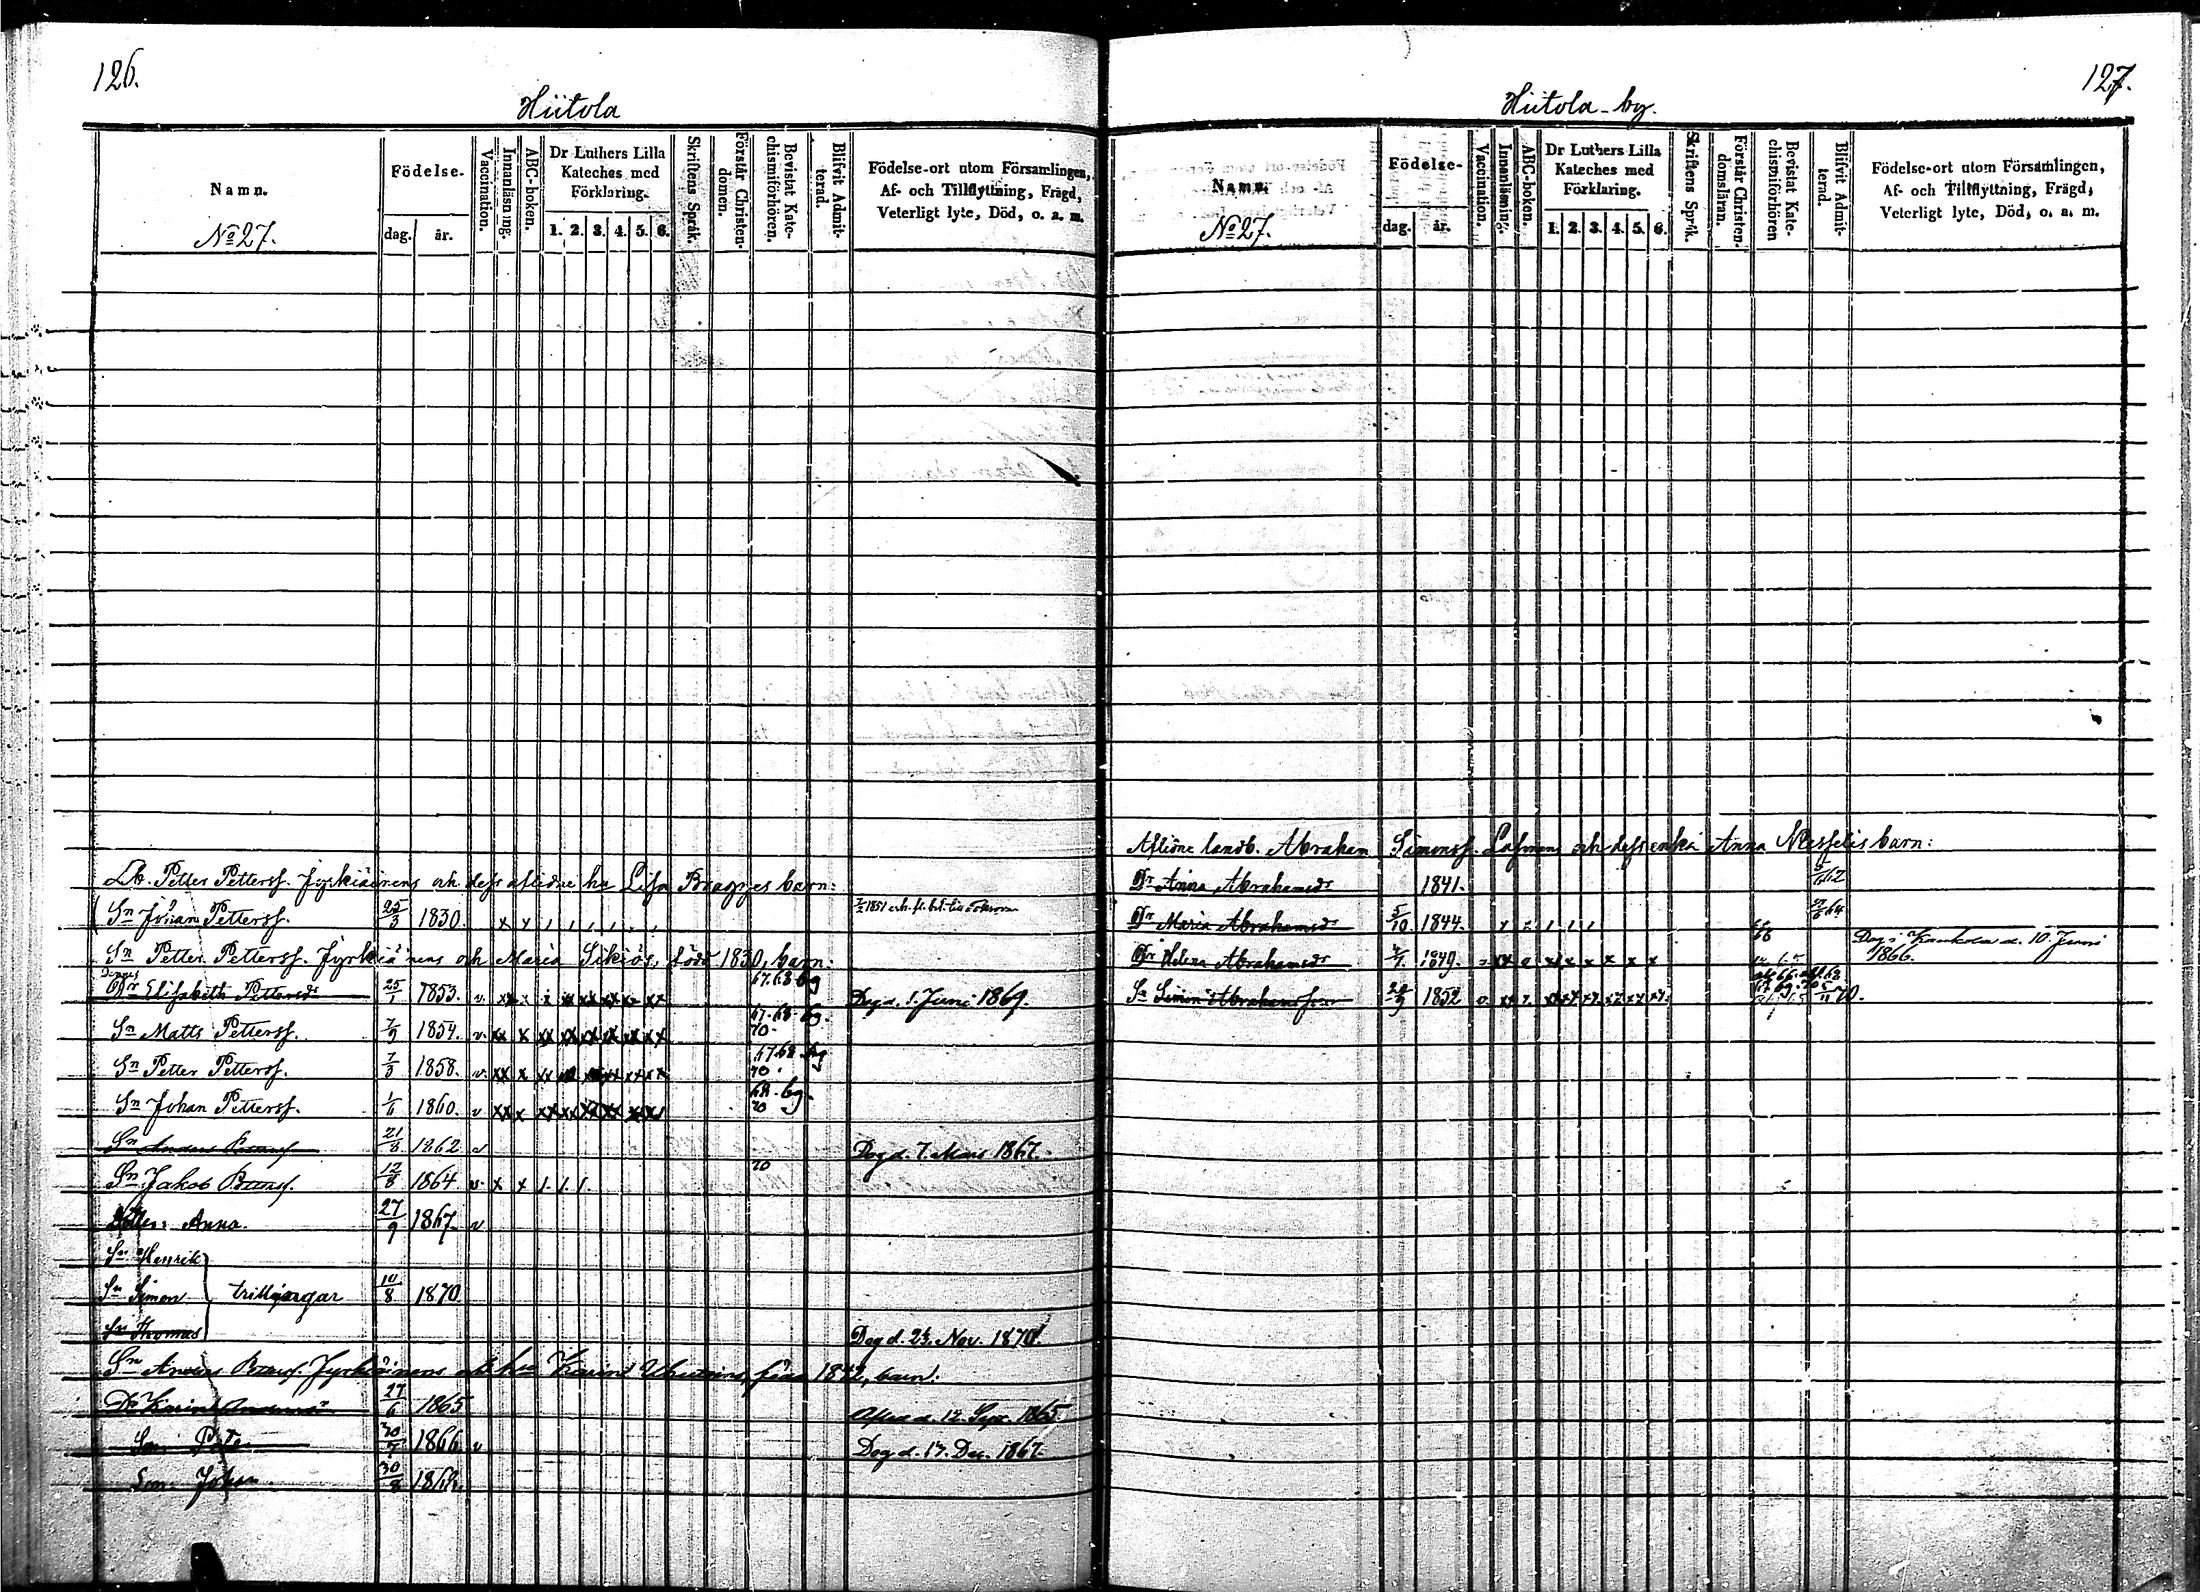 126.
Hiitola
Namn.
No 27.
Födelse.
dag. år.
Vaccination.
Innanläsning.
ABC-boken.
Dr Luthers Lilla Kateches med Förklaring.
1. 2. 3. 4. 5. 6.
Skriftens Språk.
Förstår Christendomen.
Bevistat Katechismiförhören.
Blifvit Admitterad.
Födelse-ort utom Församlingen,
Af- och Tillflyttning, Frägd,
Veterligt lyte, Död, o. a. m.
Lb. Petter Petterss. Jyrkiäinens och dess aflidne hu Lisa barn:
Sn Johan Petterss. 25/3 1830.
Sn Petter Petterss. Jyrkiäinens och Maria Sikiös, född 1830, barn:
Dr Elisabeth Pettersdr 25/1 1853. v. 67. 68. 69 Dog d. 1. Juni 1869.
Sn Matts Petterss. 7/9 1854. v. 67. 68. 69. 70.
Sn Petter Petterss. 7/3 1858. v. 67. 68. 69 70.
Sn Johan Petterss. 1/6 1860. v 68. 69. 70
Sn Anders 21/8 1862 v Dog d. 7. Mars 1867.
Sn Jakob 12/8 1864 v. 70
Anna. 27/9 1867. v
Sn Henrik
Sn Simon trillingar 10/8 1870.
Sn Thomas Dog d. 24. Nov. 1870.
Sn Anders Jyrkiäinens och hu Karin född 1842, barn:
Dr Karin 27/6 1865 d. 12. Sept. 1865.
Son Petter 1866 v Dog d. 17. Dec. 1867.
Son Johan 30/8 1868.
127.
Hiitola by.
Namn.
No 27.
Födelse-
dag. år.
Vaccination.
Innanläsning.
ABC-boken.
Dr Luthers Lilla Kateches med Förklaring.
1. 2. 3. 4. 5. 6.
Skriftens Språk.
Förstår Christendomsläran.
Bevistat Katechismiförhören
Blifvit Admitterad.
Födelse-ort utom Församlingen,
Af- och Tillflyttning, Frägd,
Veterligt lyte, Död, o. a. m.
Aflidne landb. Abraham Simonss. och dess enka Anna barn:
Dr Anna Abrahamsdr 1841.
Dr Maria Abrahamsdr 5/10 1844. 66
Dr Helena Abrahamsdr 1849. Dog i Kaukola d. 10 Juni
1866.
Sn Simon Abrahamsson 1852